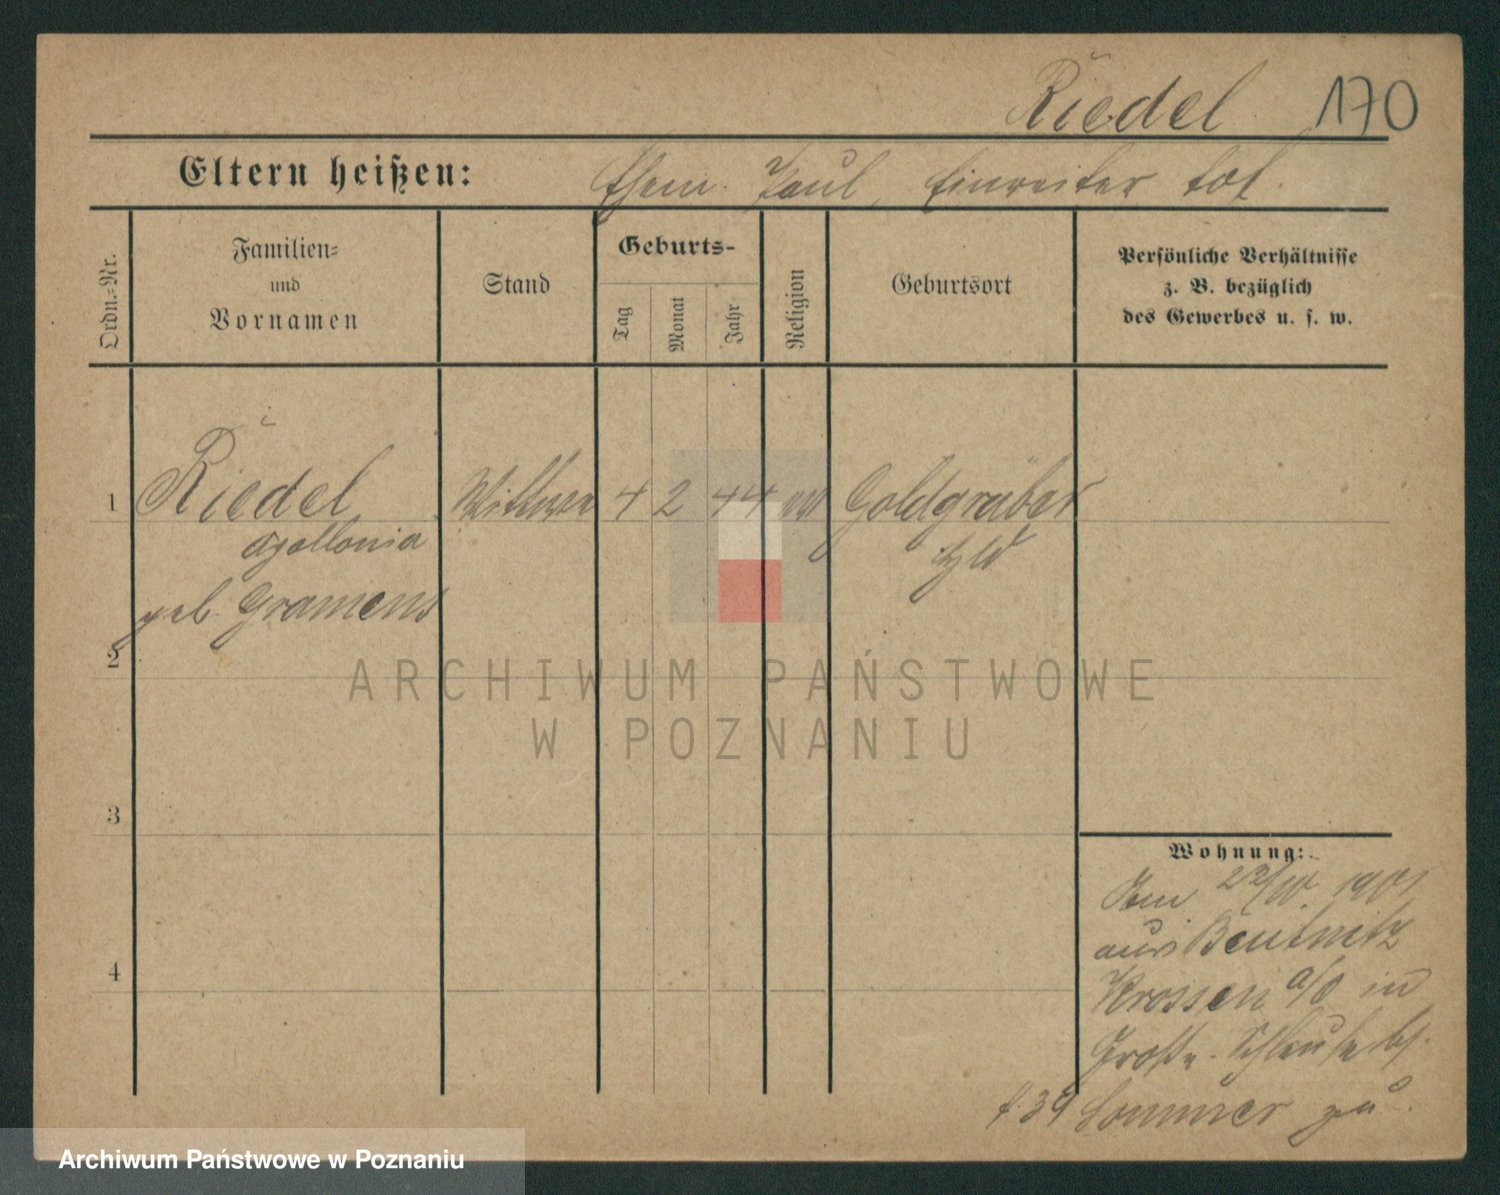 Riedel 170
Eltern heißen: Ehem. Paul, tot.
Ordn.-Nr.
Familien-
und
Vornamen
Stand
Geburts-
Tag
Monat
Jahr
Religion
Geburtsort
Persönliche Verhältnisse
z. B. bezüglich
des Gewerbes u. s. w.
1 Riedel Wittwe 4 2 44 Goldgräber
Apollonia
geb. Gramens
2
3
4
Wohnung:
1901
aus Beutnitz
Krossen a/O in
Große-Schleuse bei
39 Sommer zu
ARCHIWUM PAŃSTWOWE
W POZNANIU
Archiwum Państwowe w Poznaniu